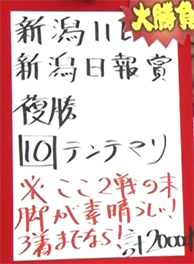 大勝負
新潟11R
新潟日報賞
複勝
10 テンテマリ
※ここ2戦の末
脚が素晴らしい!
3着までなら!計2000円